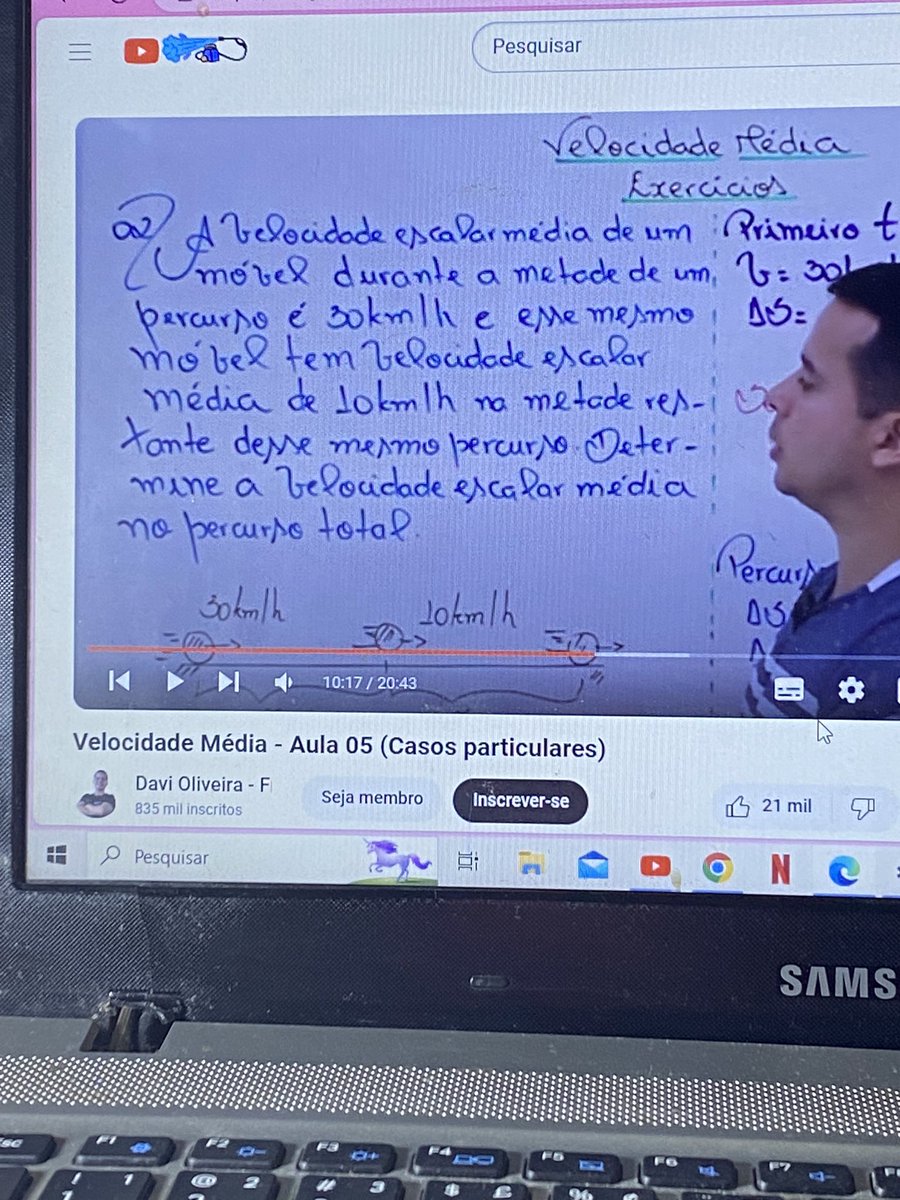 Pesquisar
Velocidade Média
Exercícios
02) A velocidade escalar média de um
móvel durante a metade de um
percurso é 30km/h e esse mesmo
móvel tem velocidade escalar
média de 10km/h na metade res-
tante desse mesmo percurso. Deter-
mine a velocidade escalar média
no percurso total.
Primeiro t
V = 30
ΔS =
Percurs
ΔS
30km/h
10km/h
10:17 / 20:43
Velocidade Média - Aula 05 (Casos particulares)
Davi Oliveira - F
835 mil inscritos
Seja membro
Inscrever-se
21 mil
Pesquisar
N
SAMS
F1
F2
F3
F4
F5
F6
F7
! 1
@ 2
# 3
$
%